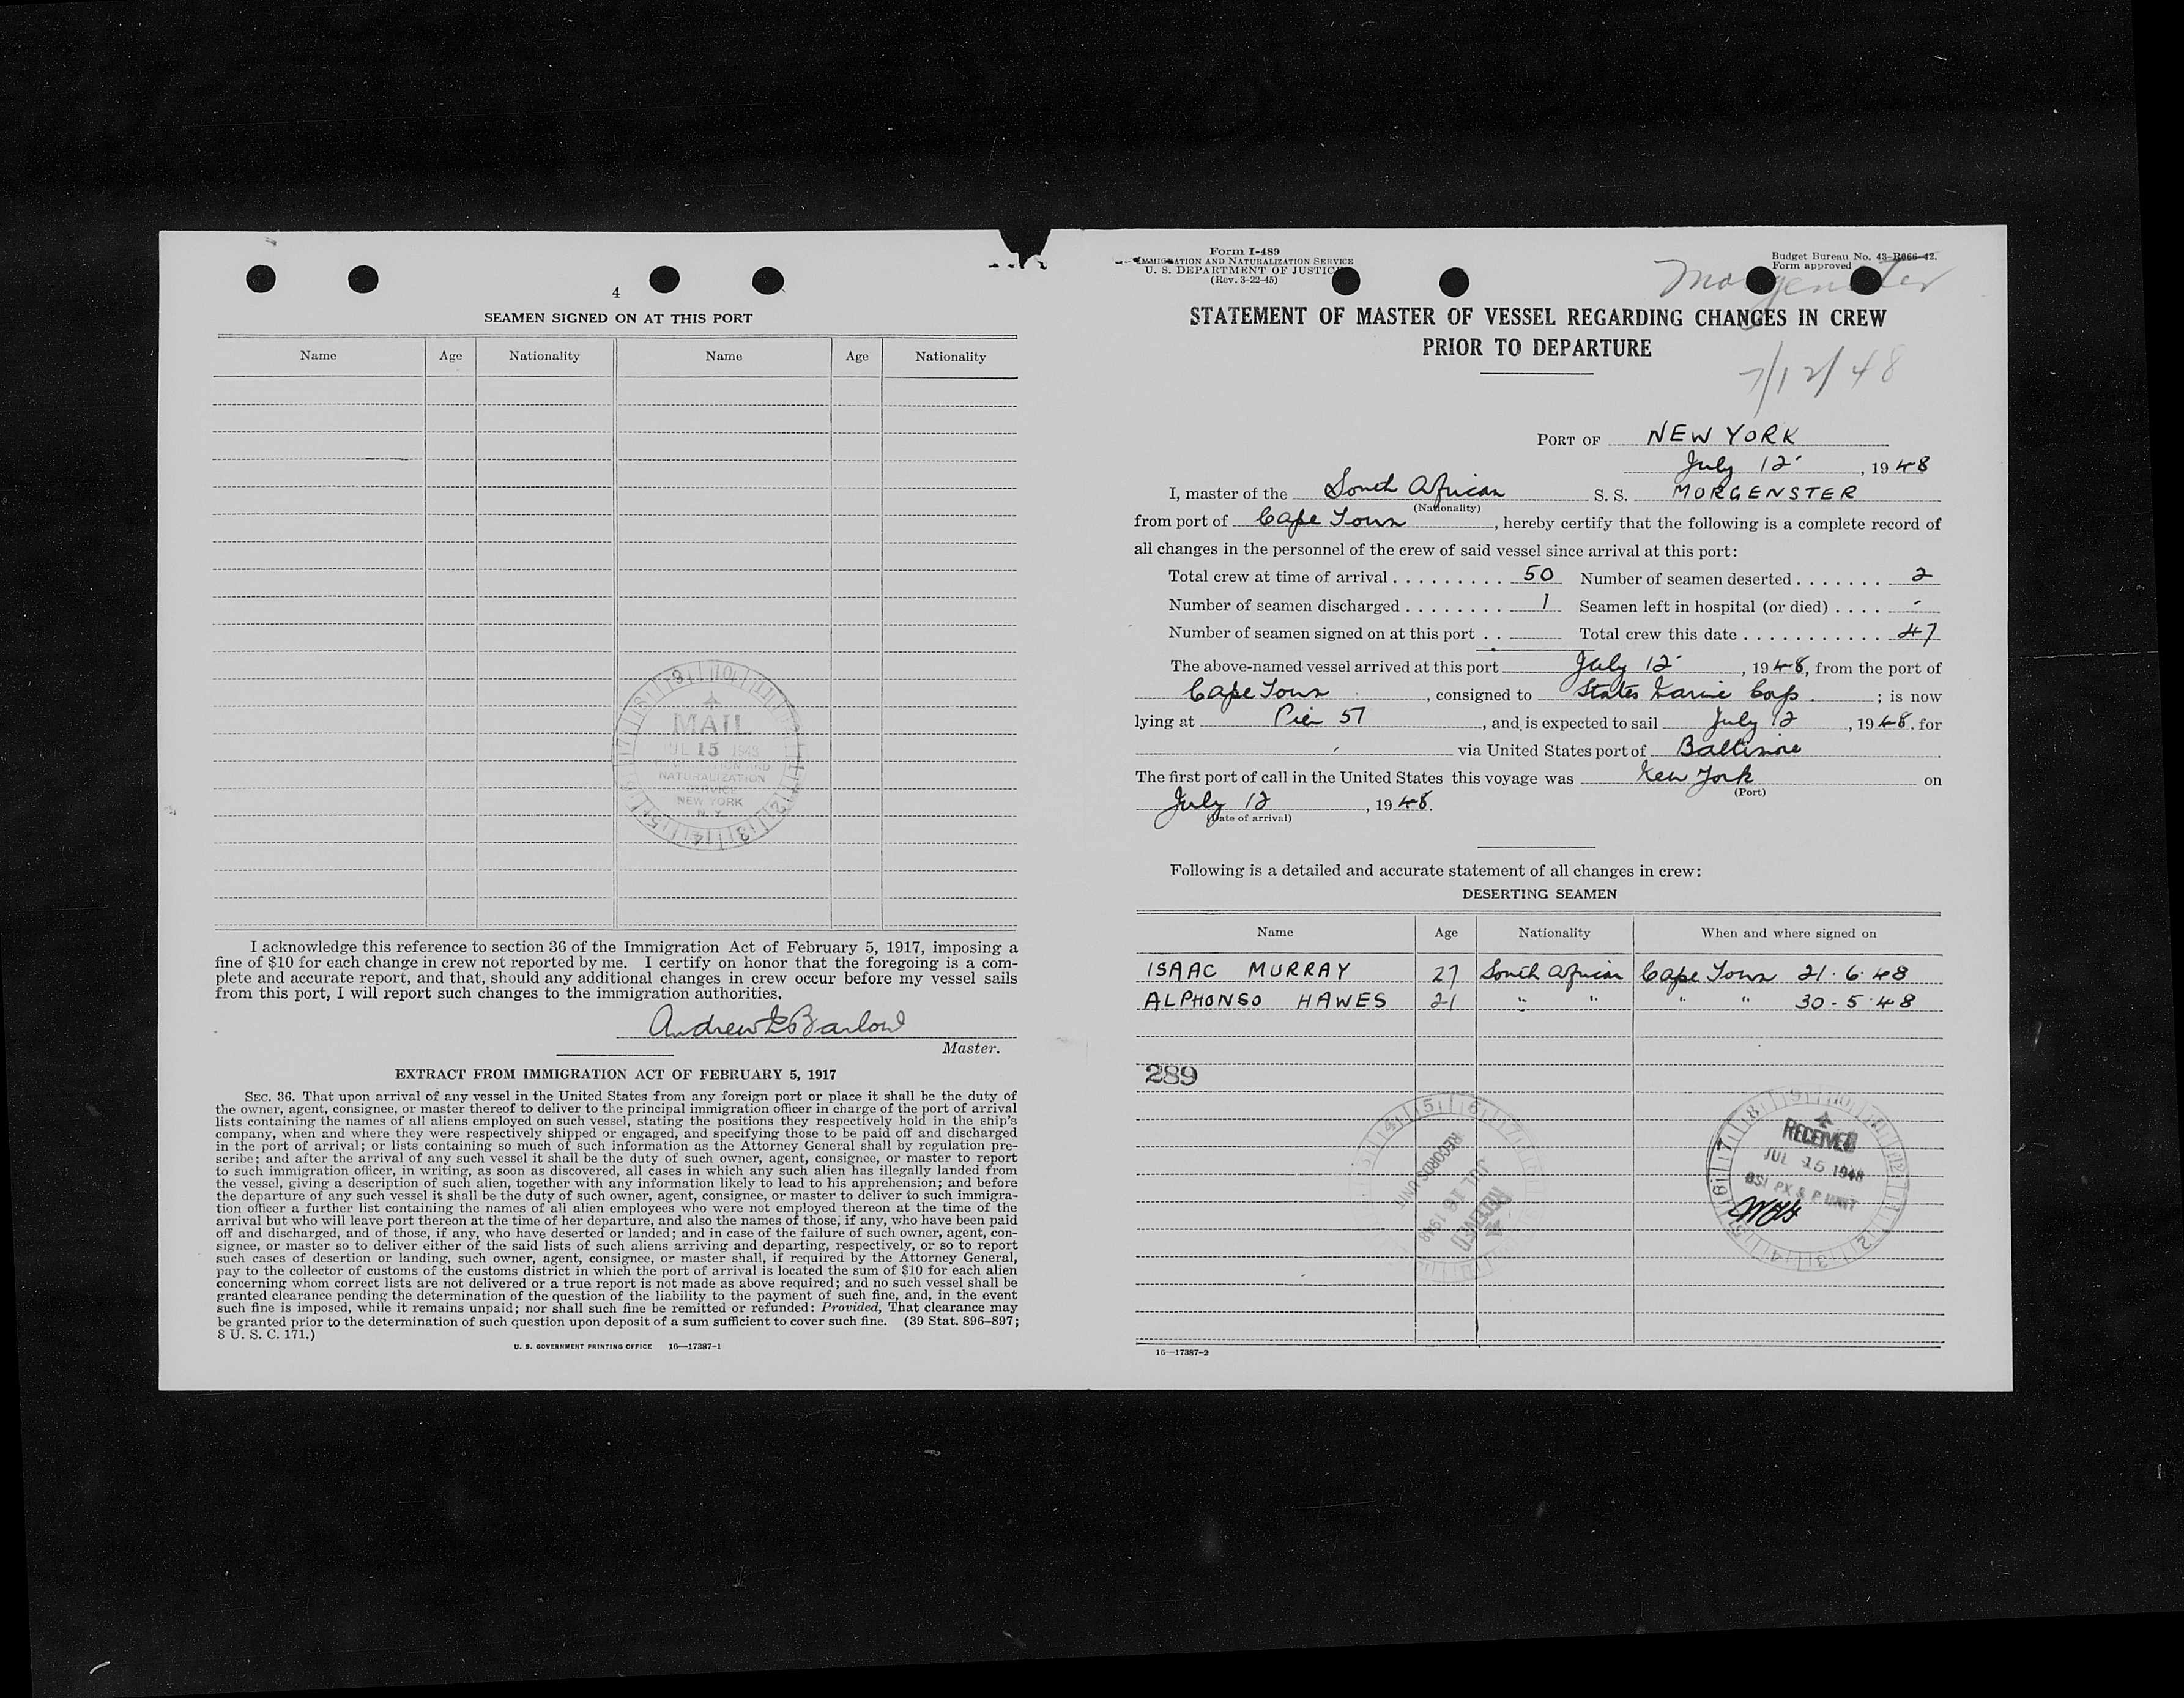 4
SEAMEN SIGNED ON AT THIS PORT
Name Age Nationality Name Age Nationality
MAIL
JUL 15 1948
IMMIGRATION AND
NATURALIZATION
SERVICE
NEW YORK
N. Y.
I acknowledge this reference to section 36 of the Immigration Act of February 5, 1917, imposing a
fine of $10 for each change in crew not reported by me. I certify on honor that the foregoing is a com-
plete and accurate report, and that, should any additional changes in crew occur before my vessel sails
from this port, I will report such changes to the immigration authorities.
Andrew Barlow
Master.
EXTRACT FROM IMMIGRATION ACT OF FEBRUARY 5, 1917
SEC. 36. That upon arrival of any vessel in the United States from any foreign port or place it shall be the duty of
the owner, agent, consignee, or master thereof to deliver to the principal immigration officer in charge of the port of arrival
lists containing the names of all aliens employed on such vessel, stating the positions they respectively hold in the ship's
company, when and where they were respectively shipped or engaged, and specifying those to be paid off and discharged
in the port of arrival; or lists containing so much of such information as the Attorney General shall by regulation pre-
scribe; and after the arrival of any such vessel it shall be the duty of such owner, agent, consignee, or master to report
to such immigration officer, in writing, as soon as discovered, all cases in which any such alien has illegally landed from
the vessel, giving a description of such alien, together with any information likely to lead to his apprehension; and before
the departure of any such vessel it shall be the duty of such owner, agent, consignee, or master to deliver to such immigra-
tion officer a further list containing the names of all alien employees who were not employed thereon at the time of the
arrival but who will leave port thereon at the time of her departure, and also the names of those, if any, who have been paid
off and discharged, and of those, if any, who have deserted or landed; and in case of the failure of such owner, agent, con-
signee, or master so to deliver either of the said lists of such aliens arriving and departing, respectively, or so to report
such cases of desertion or landing, such owner, agent, consignee, or master shall, if required by the Attorney General,
pay to the collector of customs of the customs district in which the port of arrival is located the sum of $10 for each alien
concerning whom correct lists are not delivered or a true report is not made as above required; and no such vessel shall be
granted clearance pending the determination of the question of the liability to the payment of such fine, and, in the event
such fine is imposed, while it remains unpaid; nor shall such fine be remitted or refunded: Provided, That clearance may
be granted prior to the determination of such question upon deposit of a sum sufficient to cover such fine. (39 Stat. 896–897;
8 U. S. C. 171.)
U. S. GOVERNMENT PRINTING OFFICE 16—17387-1
Form I-489
IMMIGRATION AND NATURALIZATION SERVICE
U. S. DEPARTMENT OF JUSTICE
(Rev. 3-22-45)
Budget Bureau No. 43-R066-42.
Form approved
Morgenster
STATEMENT OF MASTER OF VESSEL REGARDING CHANGES IN CREW
PRIOR TO DEPARTURE
7/12/48
PORT OF NEW YORK
July 12, 1948
I, master of the South African S. S. MORGENSTER
(Nationality)
from port of Cape Town, hereby certify that the following is a complete record of
all changes in the personnel of the crew of said vessel since arrival at this port:
Total crew at time of arrival . . . . . . . . . 50 Number of seamen deserted . . . . . . . 2
Number of seamen discharged . . . . . . . . 1 Seamen left in hospital (or died) . . . . -
Number of seamen signed on at this port . . Total crew this date . . . . . . . . . . . 47
The above-named vessel arrived at this port July 12, 1948, from the port of
Cape Town, consigned to States Marine Corp.; is now
lying at Pier 57, and is expected to sail July 12, 1948, for
via United States port of Baltimore
The first port of call in the United States this voyage was New York on
(Port)
July 12, 1948.
(Date of arrival)
Following is a detailed and accurate statement of all changes in crew:
DESERTING SEAMEN
Name Age Nationality When and where signed on
ISAAC MURRAY 27 South African Cape Town 21.6.48
ALPHONSO HAWES 21 " " " " 30-5-48
289
RECEIVED
JUL 1948
RECORDS UNIT
RECEIVED
JUL 15 1948
BSI PX & P UNIT
16—17387-2